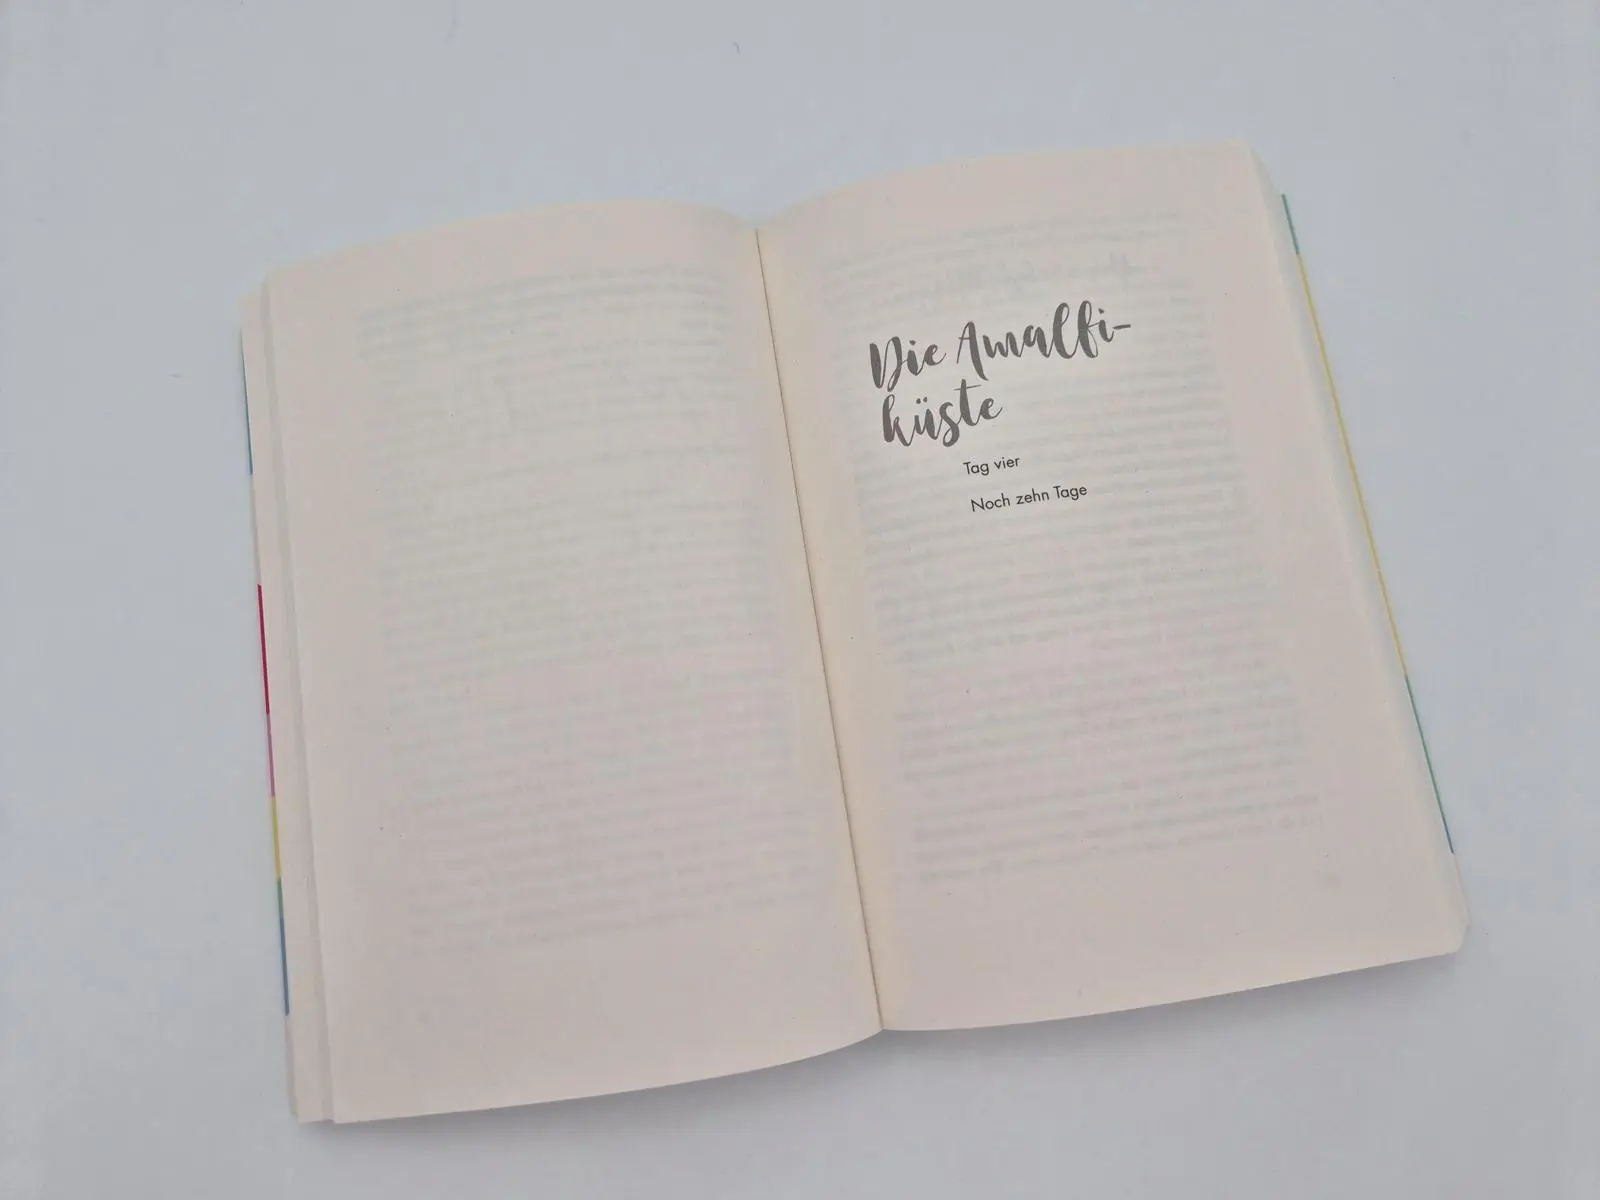 Die Amalfi-
küste
Tag vier
Noch zehn Tage